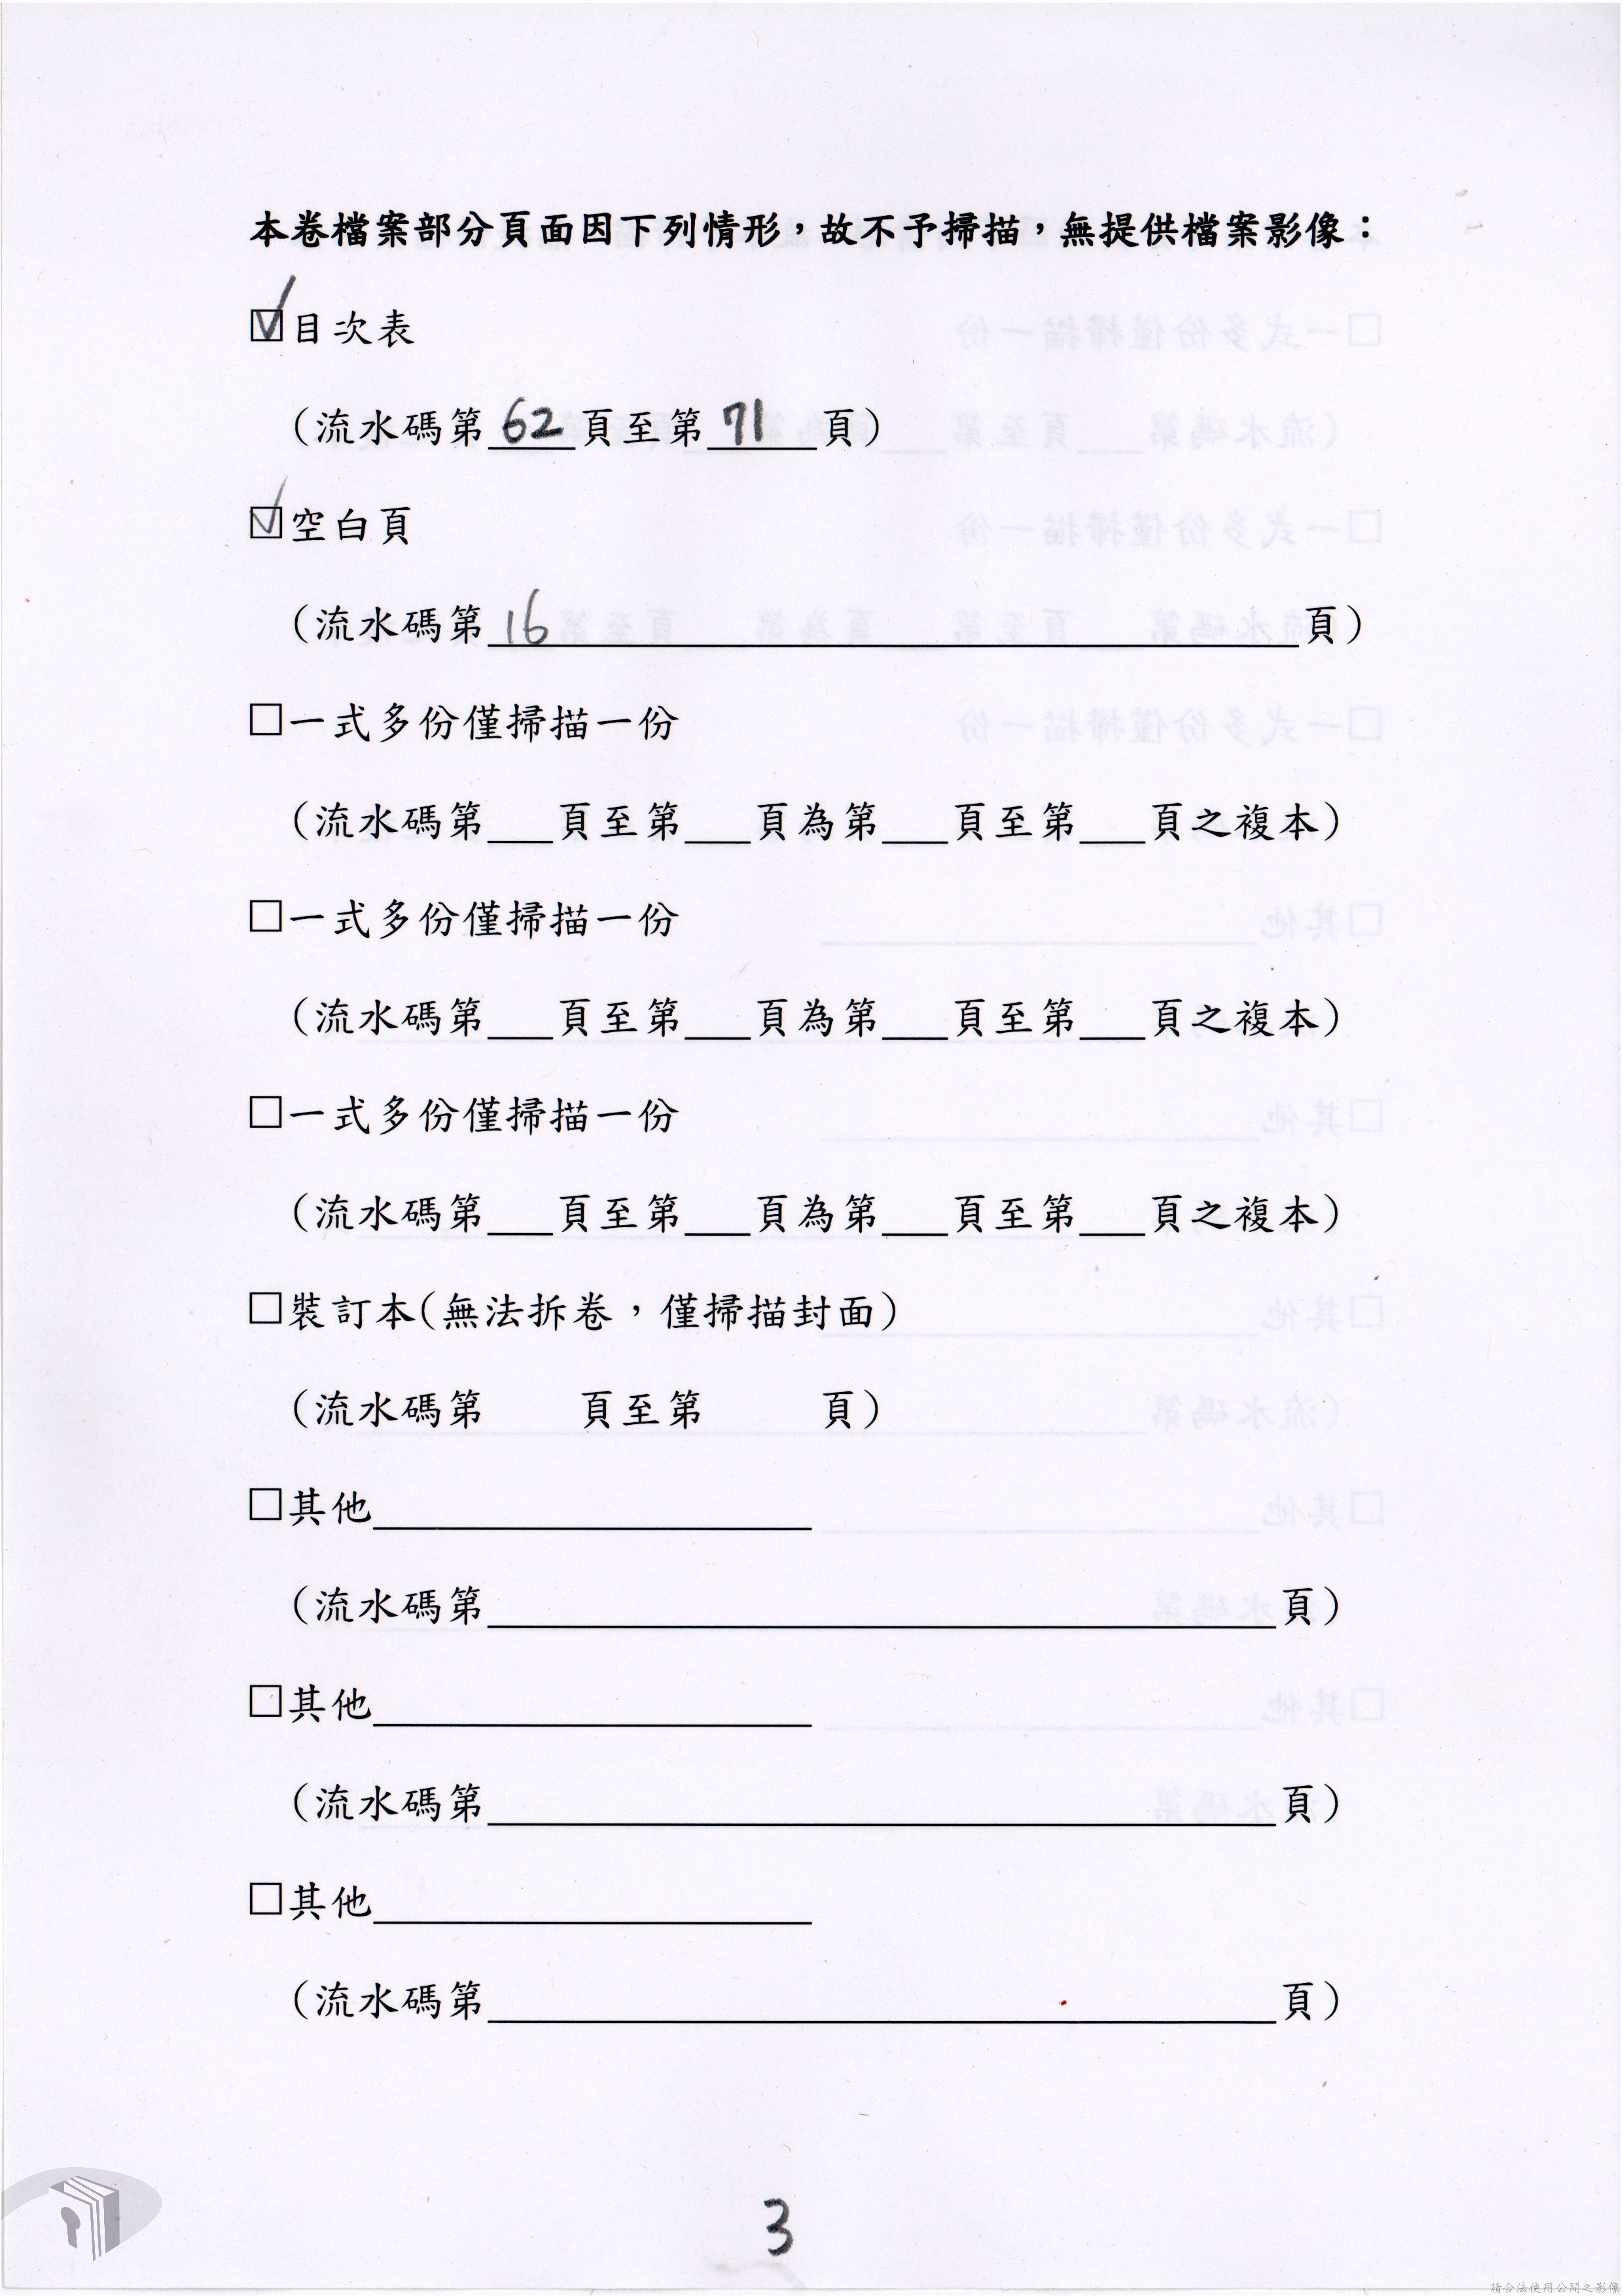 本卷檔案部分頁面因下列情形，故不予掃描，無提供檔案影像：
☑目次表
（流水碼第 62 頁至第 71 頁）
☑空白頁
（流水碼第 16 頁）
□一式多份僅掃描一份
（流水碼第___頁至第___頁為第___頁至第___頁之複本）
□一式多份僅掃描一份
（流水碼第___頁至第___頁為第___頁至第___頁之複本）
□一式多份僅掃描一份
（流水碼第___頁至第___頁為第___頁至第___頁之複本）
□裝訂本(無法拆卷，僅掃描封面)
（流水碼第　　頁至第　　頁）
□其他__________
（流水碼第__________頁）
□其他__________
（流水碼第__________頁）
□其他__________
（流水碼第__________頁）
3
請合法使用公開之影像